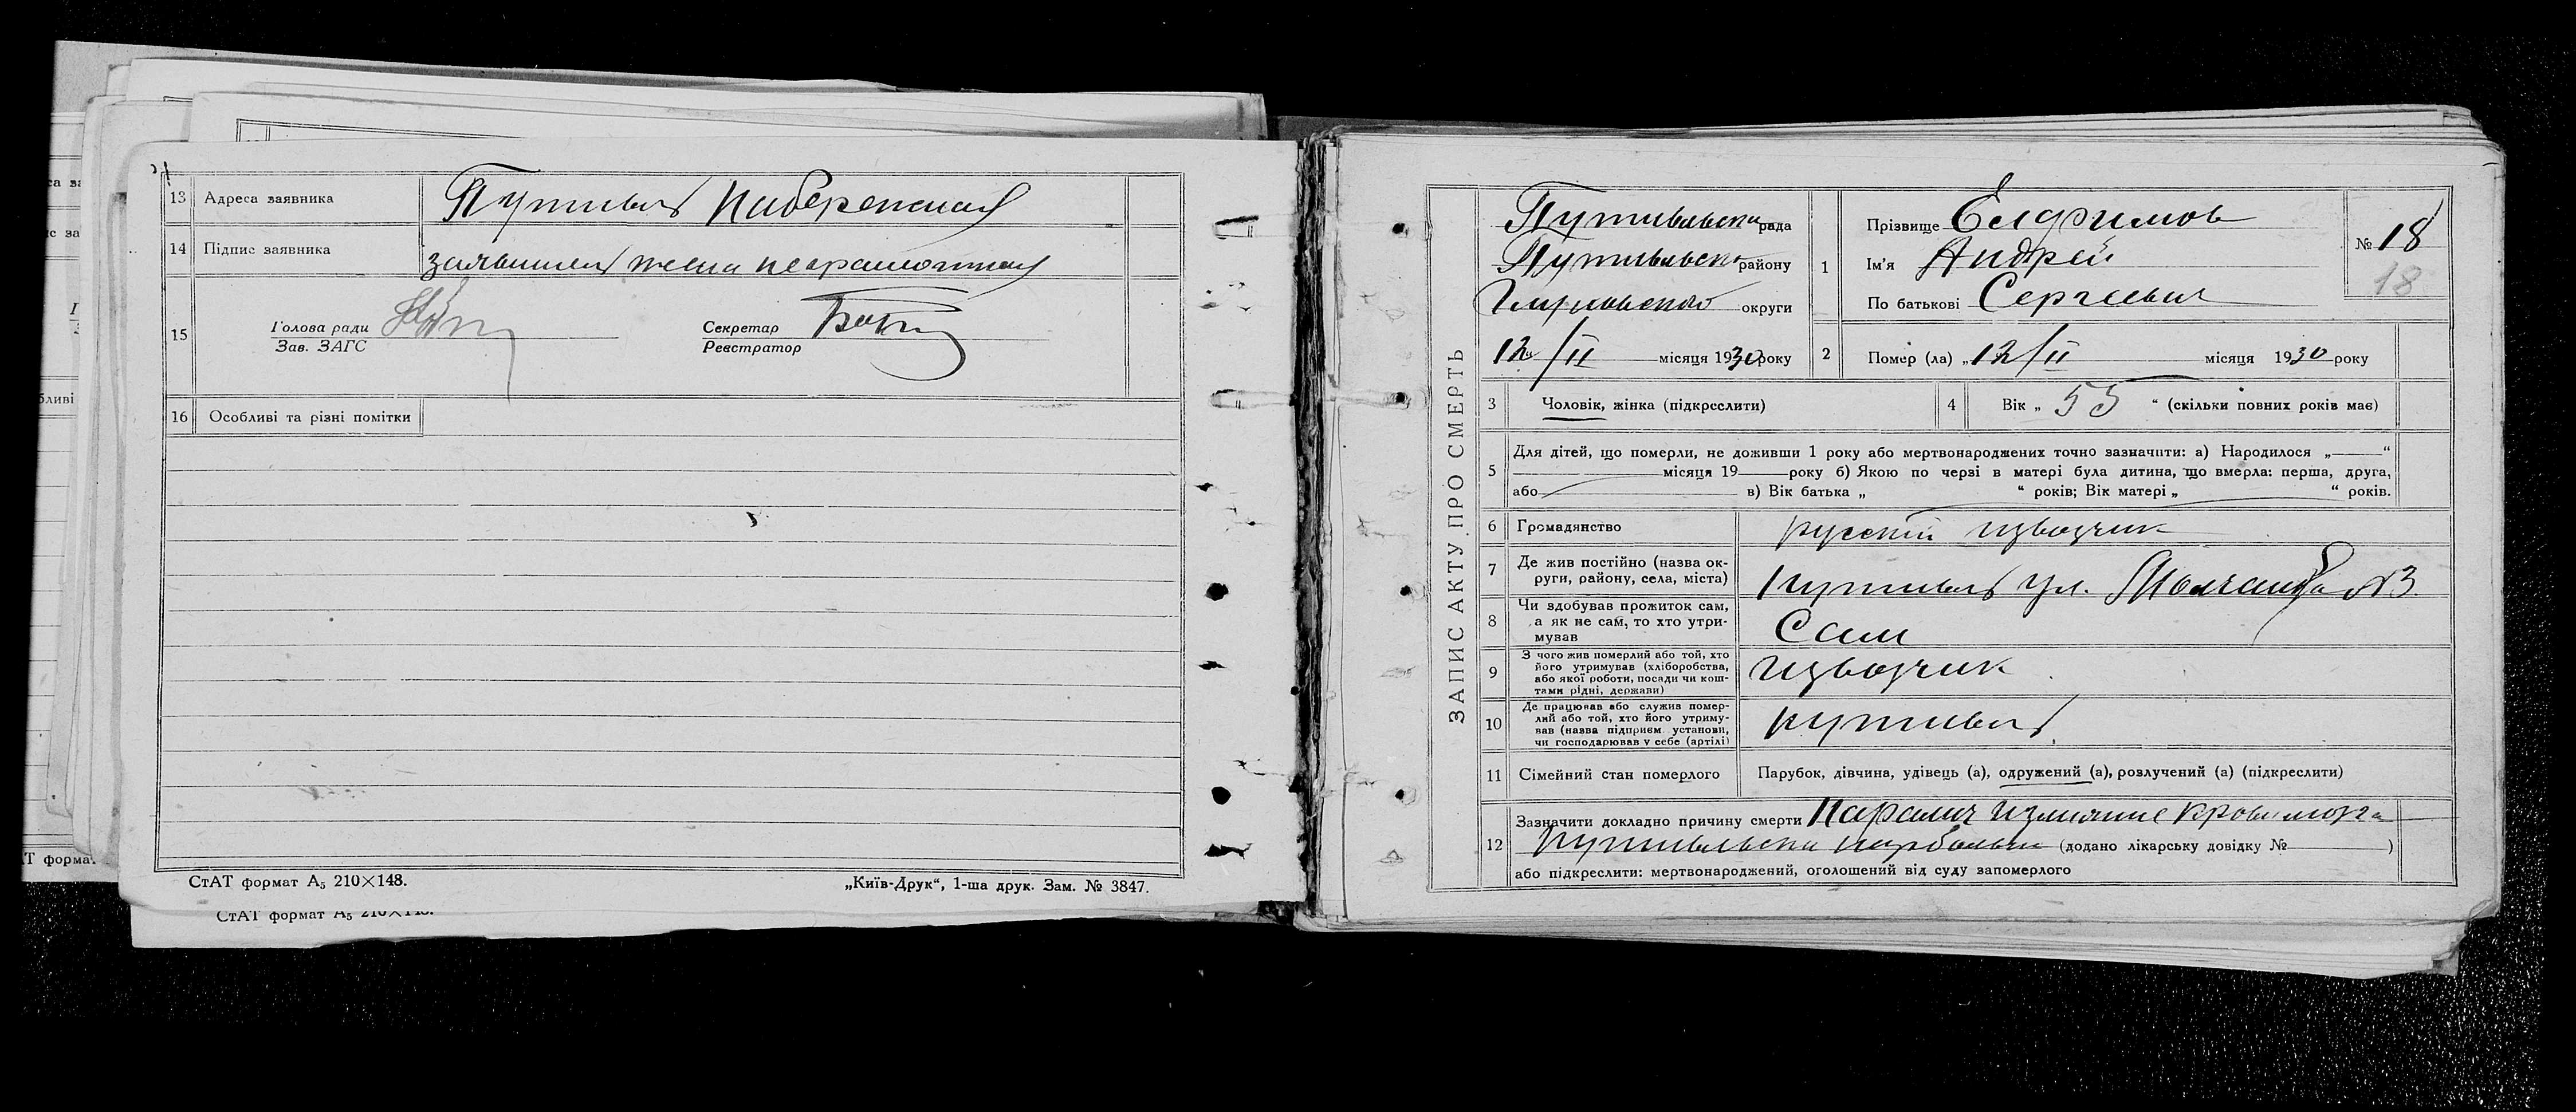 13 Адреса заявника Путивль Набережная
14 Підпис заявника заявителя жена неграмотная
15 Голова ради Секретар
Зав. ЗАГС Реєстратор
16 Особливі та різні помітки
СтАТ формат А₅ 210×148. „Київ-Друк“, 1-ша друк. Зам. № 3847.
СтАТ формат А₅ 210×148.
Т формат
ЗАПИС АКТУ ПРО СМЕРТЬ
Путивльська рада
Путивльська району
округи
12/II місяця 1930 року
1 Прізвище Елфимов
Ім'я Андрей
По батькові Сергеевич
№ 18
18
2 Помер (ла) „12/II місяця 1930 року
3 Чоловік, жінка (підкреслити) 4 Вік „ 55 “ (скільки повних років має)
5 Для дітей, що померли, не доживши 1 року або мертвонароджених точно зазначити: а) Народилося „ “
місяця 19 року б) Якою по черзі в матері була дитина, що вмерла: перша, друга,
або в) Вік батька „ “ років; Вік матері „ “ років.
6 Громадянство русский извозчик
7 Де жив постійно (назва ок-
руги, району, села, міста) Путивль ул. №3
8 Чи здобував прожиток сам,
а як не сам, то хто утри-
мував Сам
9 З чого жив померлий або той, хто
його утримував (хліборобства,
або якої роботи, посади чи кош-
тами рідні, держави) извозчик
10 Де працював або служив помер-
лий або той, хто його утриму-
вав (назва підприєм. установи,
чи господарював у себе (артілі) Путивль
11 Сімейний стан померлого Парубок, дівчина, удівець (а), одружений (а), розлучений (а) (підкреслити)
12 Зазначити докладно причину смерти Паралич излияние крови мозга
Путивльська (додано лікарську довідку № )
або підкреслити: мертвонароджений, оголошений від суду запомерлого